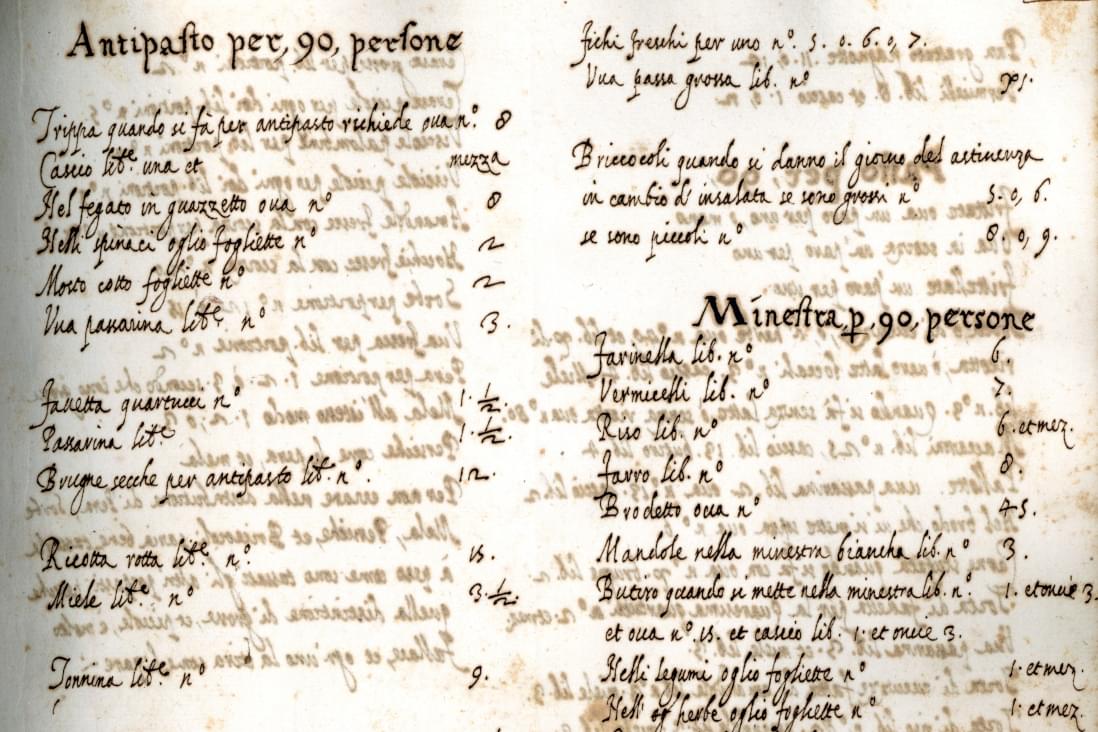 Antipasto per, 90, persone
Trippa quando si fà per antipasto richiede oua n.º 8
Cascio libre. una et mezza
Nel fegato in guazzetto oua nº 8
Nelli spinaci oglio fogliette nº 2
Mosto cotto fogliette nº 2
Vua passarina libre. nº 3.
Fauetta quartucci nº 1. 1/2.
Passarina libre 1. 1/2.
Brugne secche per antipasto lib. nº. 12.
Ricotta rotta libre. nº. 15.
Miele libre. nº 3. 1/2.
Tonnina libre. nº 9.
fichi freschi per uno nº. 5. o. 6. o, 7.
Vua passa grossa lib. nº
Briccocoli quando si danno il giorno del astinenza
in cambio d'insalata se sono grossi nº 5. o, 6.
se sono piccoli nº 8. o, 9.
Minestra, p, 90, persone
Farinella lib. nº 6.
Vermicelli lib. nº 7.
Riso lib. nº 6. et mez.
Farro lib. nº 8.
Brodetto oua nº 45.
Mandole nella minestra biancha lib. nº 3.
Butiro quando si mette nella minestra lib. nº. 1. et oncie 3.
et oua nº. 15. et cascio lib. 1. et oncie 3.
Nelli legumi oglio fogliette nº 1. et mez.
Nell herbe oglio fogliette nº 1. et mez.